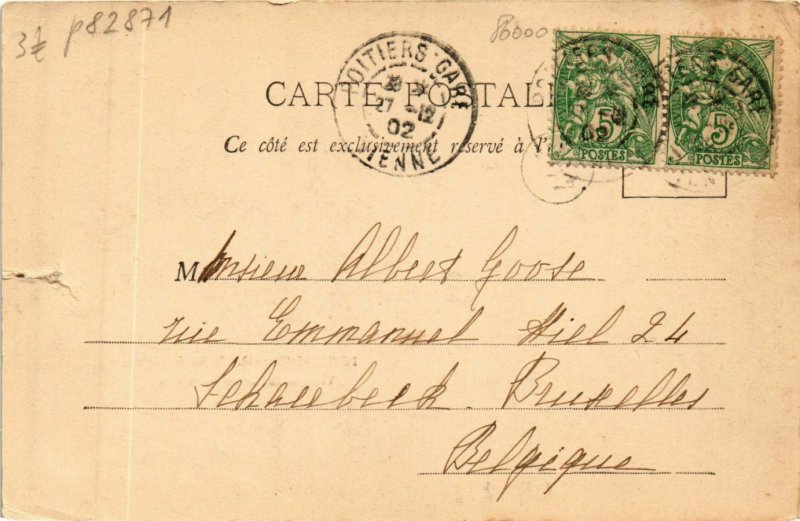 3t p82871
80000
POITIERS GARE
27 -12
02
VIENNE
5c 5c
POSTES POSTES
CARTE POSTALE
Ce côté est exclusivement réservé à l'
Monsieur Albert Goose
rue Emmanuel Hiel 24
Schaerbeek. Bruxelles
Belgique